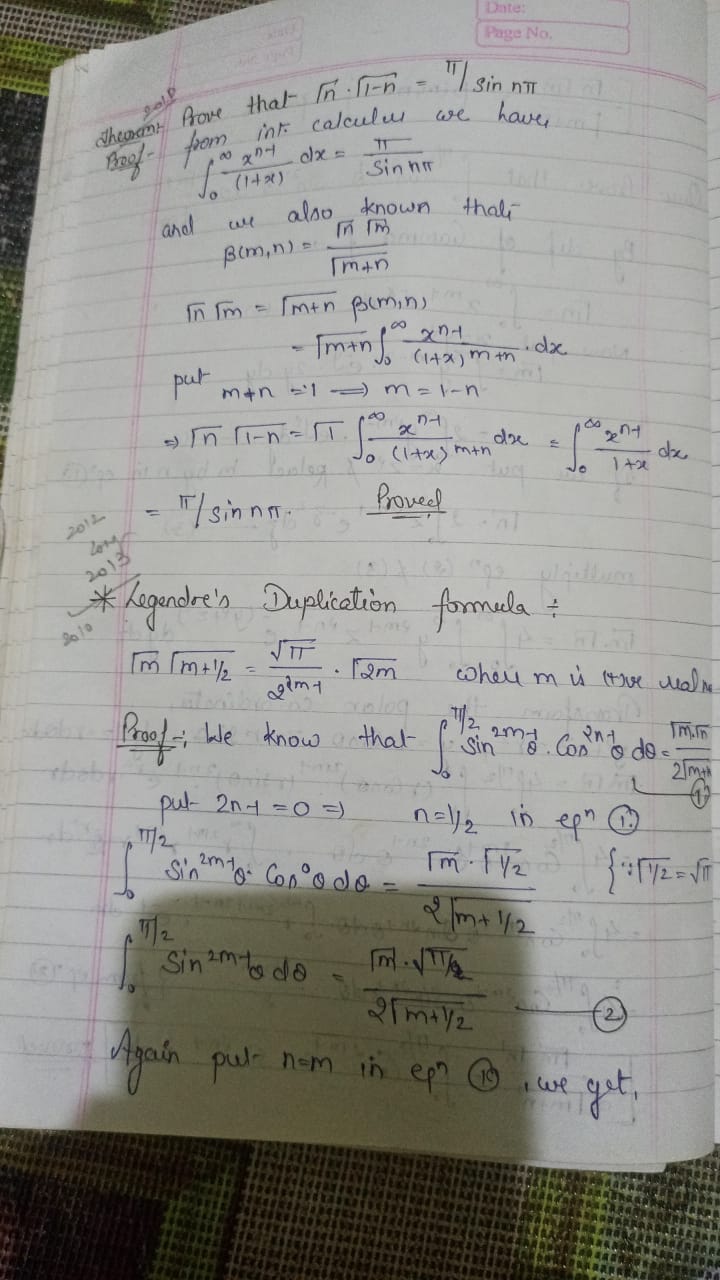 Date:
Page No.
2018
Theorem:- Prove that Γn · Γ1-n = π/sin nπ
Proof- from int. calculus we have,
∫₀^∞ x^(n-1)/(1+x) dx = π/Sin nπ
and we also known that-
β(m,n) = Γn Γm/Γm+n
Γn Γm = Γm+n β(m,n)
= Γm+n ∫₀^∞ x^(n-1)/(1+x)^(m+n) · dx
put m+n = 1 ⟹ m = 1-n
⇒ Γn Γ1-n = Γ1 ∫₀^∞ x^(n-1)/(1+x)^(m+n) dx = ∫₀^∞ x^(n-1)/(1+x) dx
= π/sin nπ. Proved
2012
2013
2010
* Legendre's Duplication formula ÷
Γm Γm+1/2 = √π/2^(2m-1) · Γ2m where m is (+ve real
Proof-; We know that ∫₀^(π/2) Sin^(2m-1) θ. Cos^(2n-1) θ dθ = Γm.Γn/2Γm+n
①
put 2n-1 = 0 ⇒ n=1/2 in eqⁿ ①
∫₀^(π/2) Sin^(2m-1) θ. Cos⁰ θ dθ = Γm · Γ1/2/2Γm+1/2 {∵ Γ1/2 = √π
∫₀^(π/2) Sin^(2m-1) θ dθ = Γm . √π/2Γm+1/2 — ②
Again put n=m in eqⁿ ①, we get,